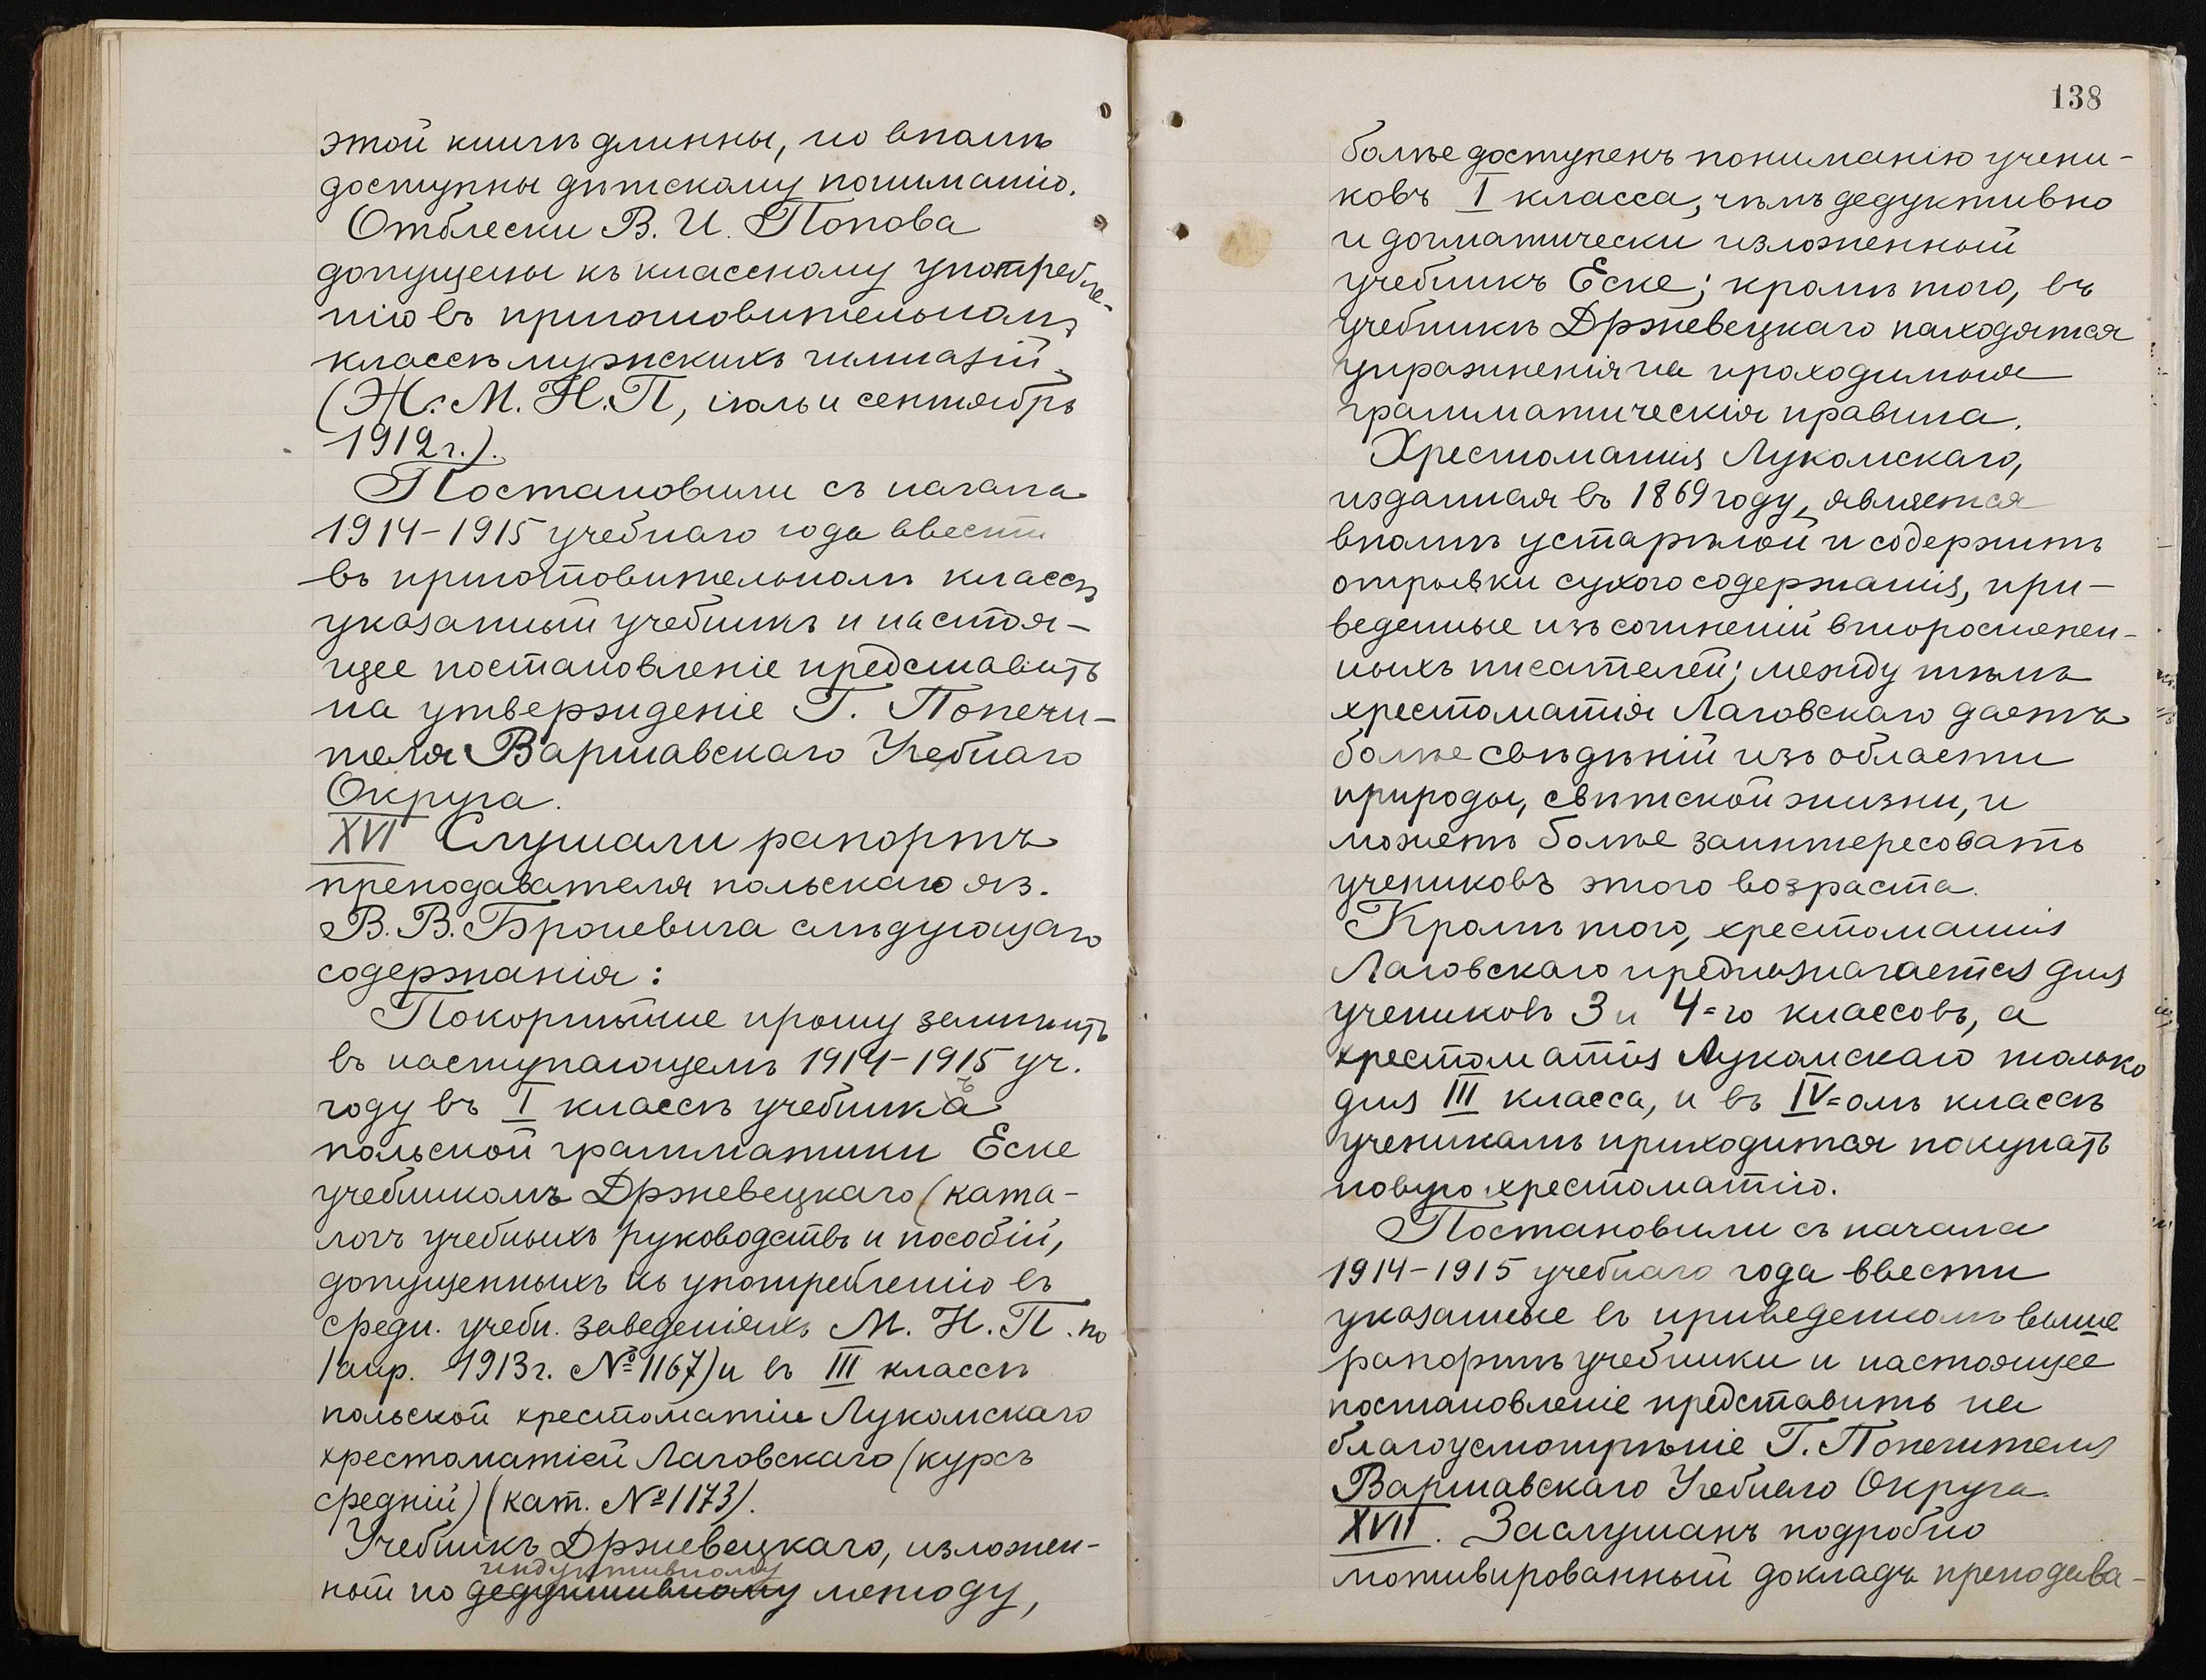 этой книгѣ длинны, но вполнѣ
доступны дѣтскому пониманію.
Отблески В. И. Попова
допущены къ классному употребле-
нію въ приготовительномъ
классѣ мужскихъ гимназій
(Ж. М. Н. П, іюль и сентябрь
1912 г.).
Постановили съ начала
1914-1915 учебнаго года ввести
въ приготовительномъ классѣ
указанный учебникъ и настоя-
щее постановленіе представить
на утвержденіе Г. Попечи-
теля Варшавскаго Учебнаго
Округа.
XVI Слушали рапортъ
преподавателя польскаго яз.
В. В. Броневича слѣдующаго
содержанія:
Покорнѣйше прошу замѣнить
въ наступающемъ 1914-1915 уч.
году въ I классѣ учебникъ
польской грамматики Еске
учебникомъ Држевецкаго (ката-
логъ учебныхъ руководствъ и пособій,
допущенныхъ къ употребленію въ
средн. учебн. заведеніяхъ М. Н. П. по
1 апр. 1913 г. № 1167) и въ III классѣ
польской хрестоматіи Лукомскаго
хрестоматіей Лаговскаго (курсъ
средній) (кат. № 1173).
Учебникъ Држевецкаго, изложен-
индуктивному
ный по дедуктивному методу,
138
болѣе доступенъ пониманію учени-
ковъ I класса, чѣмъ дедуктивно
и догматически изложенный
учебникъ Еске; кромѣ того, въ
учебникѣ Држевецкаго находятся
упражненія на проходимыя
грамматическія правила.
Хрестоматія Лукомскаго,
изданная въ 1869 году, является
вполнѣ устарѣлой и содержитъ
отрывки сухого содержанія, при-
веденные изъ сочиненій второстепен-
ныхъ писателей; между тѣмъ
хрестоматія Лаговскаго даетъ
болѣе свѣдѣній изъ области
природы, свѣтской жизни, и
можетъ болѣе заинтересовать
учениковъ этого возраста.
Кромѣ того, хрестоматія
Лаговскаго предназначается для
учениковъ 3 и 4=го классовъ, а
хрестоматія Лукомскаго только
для III класса, и въ IV=омъ классѣ
ученикамъ приходится покупать
новую хрестоматію.
Постановили съ начала
1914-1915 учебнаго года ввести
указанные въ приведенномъ выше
рапортѣ учебники и настоящее
постановленіе представить на
благоусмотрѣніе Г. Попечителя
Варшавскаго Учебнаго Округа
XVII. Заслушанъ подробно
мотивированный докладъ преподава-